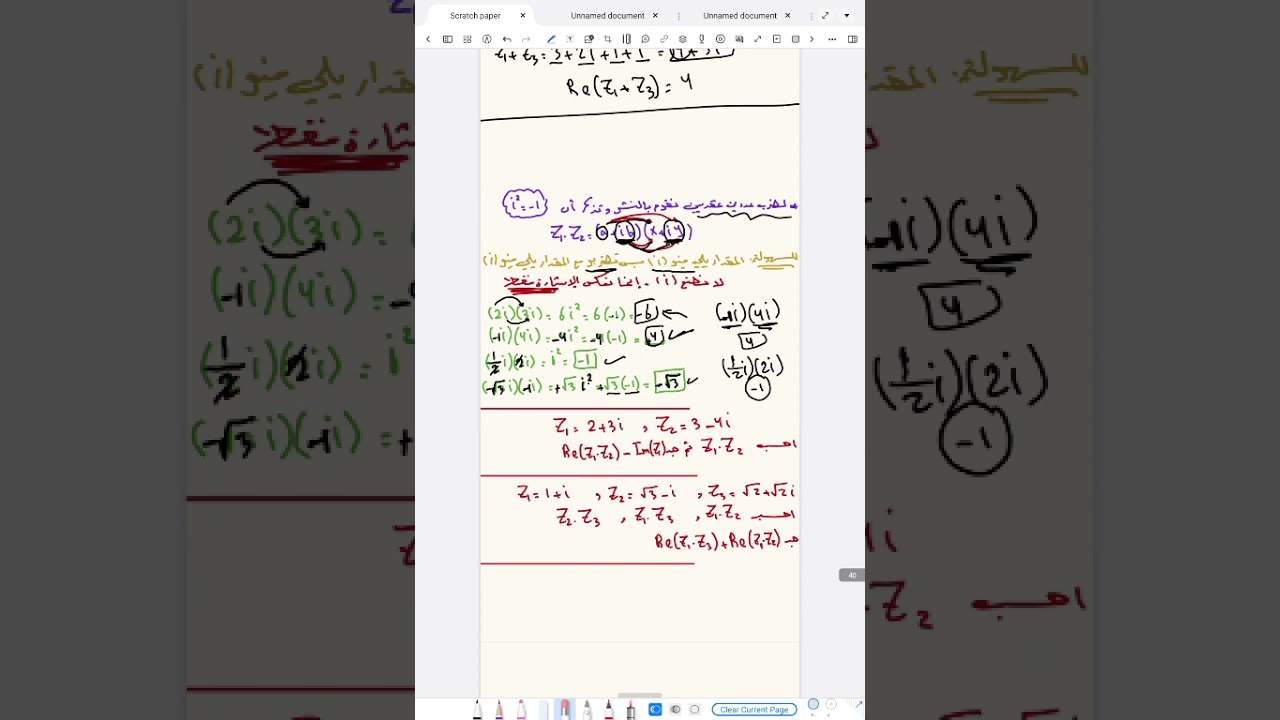 Scratch paper Unnamed document Unnamed document
z₁+z₃ = 3+2i+1+i = 4+3i
Re(z₁+z₃) = 4
لضرب عددين عقديين نقوم بالنشر ونذكر أن i²=-1
Z₁·Z₂=(a+ib)(x+iy)
للسهولة: المقدار يلي مينو (i) بس نضربو مع المقدار يلي مينو (i)
لا نضع (i). إنما نعكس الإشارة نفعلا
(2i)(3i)= 6i²= 6(-1)= -6
(-1i)(4i)= -4i²= -4(-1)= 4
(½i)(2i)= i²= -1
(-√3i)(-1i)= +√3 i² +√3(-1)= -√3
(-1i)(4i)
4
(½i)(2i)
-1
Z₁= 2+3i , Z₂= 3-4i
احسب Z₁·Z₂ ثم جد Re(Z₁·Z₂) - Im(Z₁)
Z₁= 1+i , Z₂= √3-i , Z₃= √2+√2i
احسب Z₁·Z₂ , Z₁·Z₃ , Z₂·Z₃
Re(Z₁·Z₃)+Re(Z₁·Z₂)
40
Clear Current Page